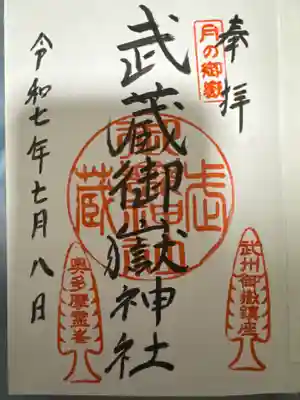 奉拝
月の御嶽
武蔵御嶽神社
令和七年七月八日
武州御嶽鎮座
奥多摩霊峯